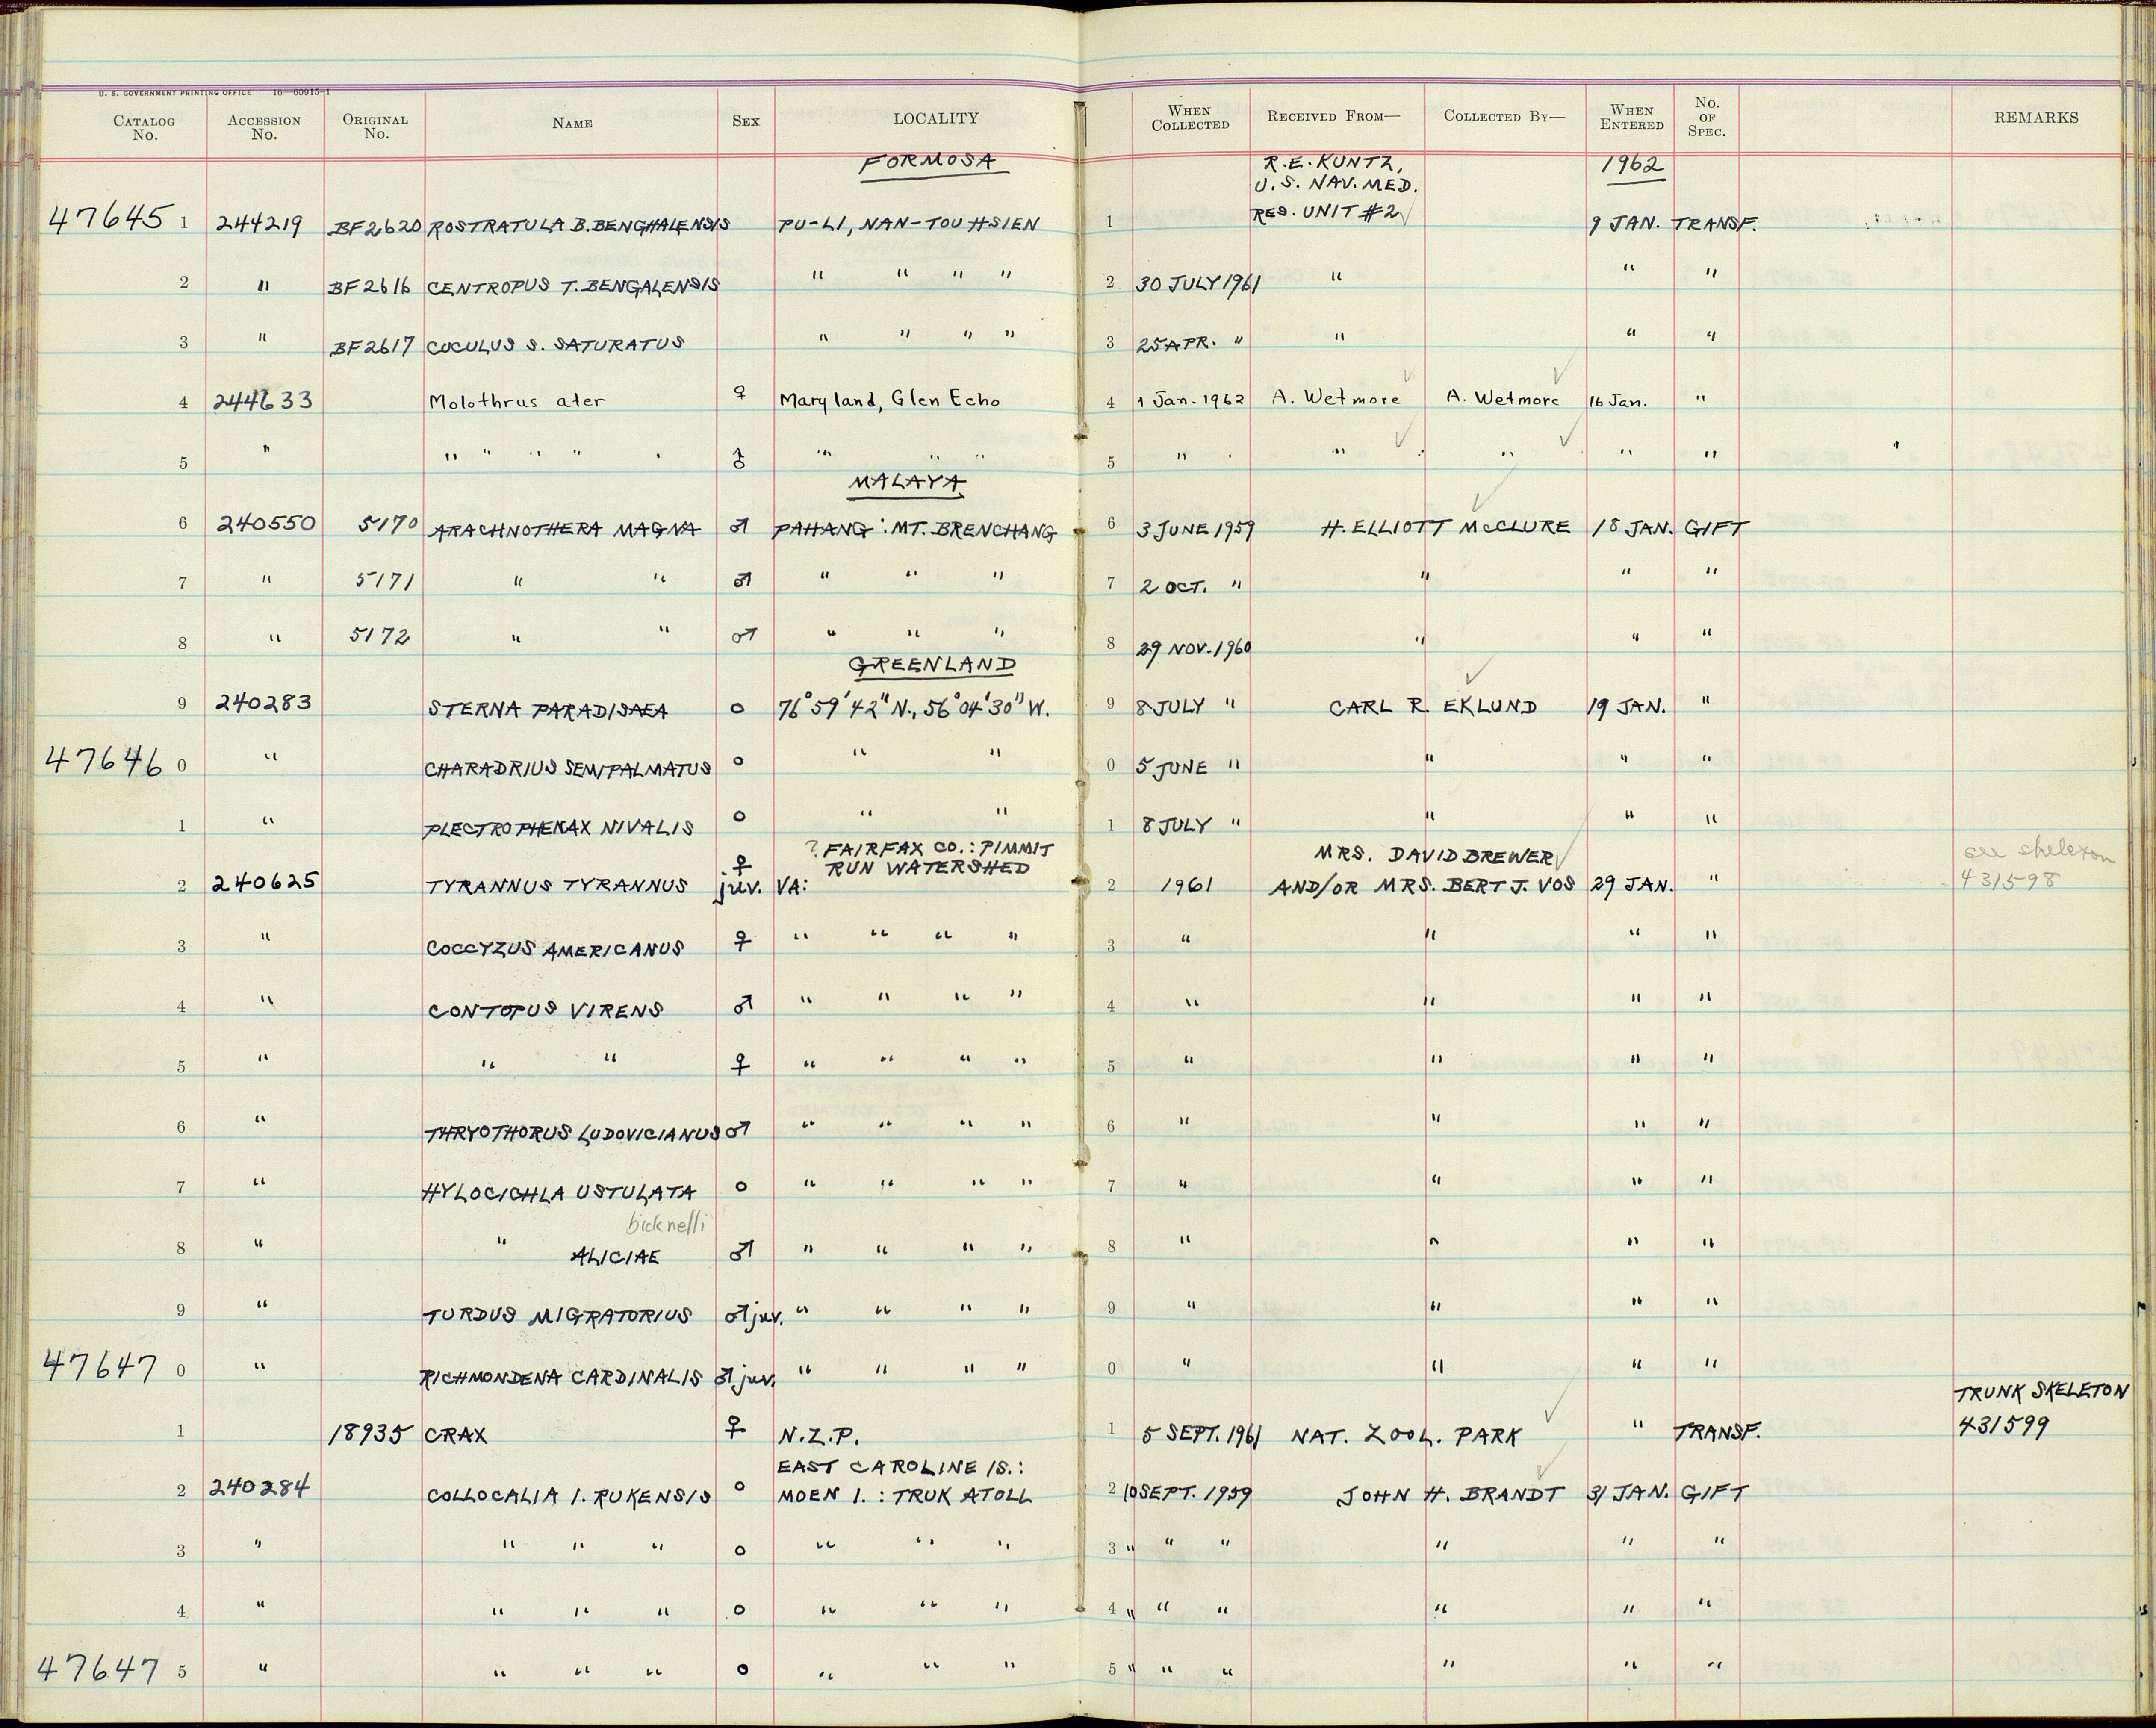 U. S. GOVERNMENT PRINTING OFFICE 16—60915-1
CATALOG No. ACCESSION No. ORIGINAL No. NAME SEX LOCALITY WHEN COLLECTED RECEIVED FROM— COLLECTED BY— WHEN ENTERED No. OF SPEC. REMARKS
FORMOSA R.E. KUNTZ, 1962
U.S. NAV. MED.
RES. UNIT #2
47645 1 244219 BF2620 ROSTRATULA B. BENGHALENSIS PU-LI, NAN-TOU HSIEN 1 9 JAN. TRANSF.
2 " BF2616 CENTROPUS T. BENGALENSIS " " " " 2 30 JULY 1961 " " "
3 " BF2617 CUCULUS S. SATURATUS " " " " 3 25 APR. " " " "
4 244633 Molothrus ater ♀ Maryland, Glen Echo 4 1 Jan. 1962 A. Wetmore A. Wetmore 16 Jan. "
5 " " " " " ♂ " " " 5 " " " " "
MALAYA
6 240550 5170 ARACHNOTHERA MAGNA ♂ PAHANG: MT. BRENCHANG 6 3 JUNE 1959 H. ELLIOTT McCLURE 18 JAN. GIFT
7 " 5171 " " ♂ " " " 7 2 OCT. " " " "
8 " 5172 " " ♂ " " " 8 29 NOV. 1960 " " "
GREENLAND
9 240283 STERNA PARADISAEA o 76°59'42" N., 56°04'30" W. 9 8 JULY " CARL R. EKLUND 19 JAN. "
47646 0 " CHARADRIUS SEMIPALMATUS o " " 0 5 JUNE " " " "
1 " PLECTROPHENAX NIVALIS o " " 1 8 JULY " " " "
? FAIRFAX CO.: PIMMIT MRS. DAVID BREWER see skeleton
♀ RUN WATERSHED
2 240625 TYRANNUS TYRANNUS juv. VA: 2 1961 AND/OR MRS. BERT J. VOS 29 JAN. " 431598
3 " COCCYZUS AMERICANUS ♀ " " " " 3 " " " "
4 " CONTOPUS VIRENS ♂ " " " " 4 " " " "
5 " " " ♀ " " " " 5 " " " "
6 " THRYOTHORUS LUDOVICIANUS ♂ " " " " 6 " " " "
7 " HYLOCICHLA USTULATA o " " " " 7 " " " "
bicknelli
8 " " ALICIAE ♂ " " " " 8 " " " "
9 " TURDUS MIGRATORIUS ♂ juv. " " " " 9 " " " "
47647 0 " RICHMONDENA CARDINALIS ♂ juv. " " " " 0 " " " "
TRUNK SKELETON
1 18935 CRAX ♀ N.Z.P. 1 5 SEPT. 1961 NAT. ZOOL. PARK " TRANSF. 431599
EAST CAROLINE IS.:
2 240284 COLLOCALIA I. RUKENSIS o MOEN I.: TRUK ATOLL 2 10 SEPT. 1959 JOHN H. BRANDT 31 JAN. GIFT
3 " " " " o " " " 3 " " " " " "
4 " " " " o " " " 4 " " " " " "
47647 5 " " " " o " " " 5 " " " " " "